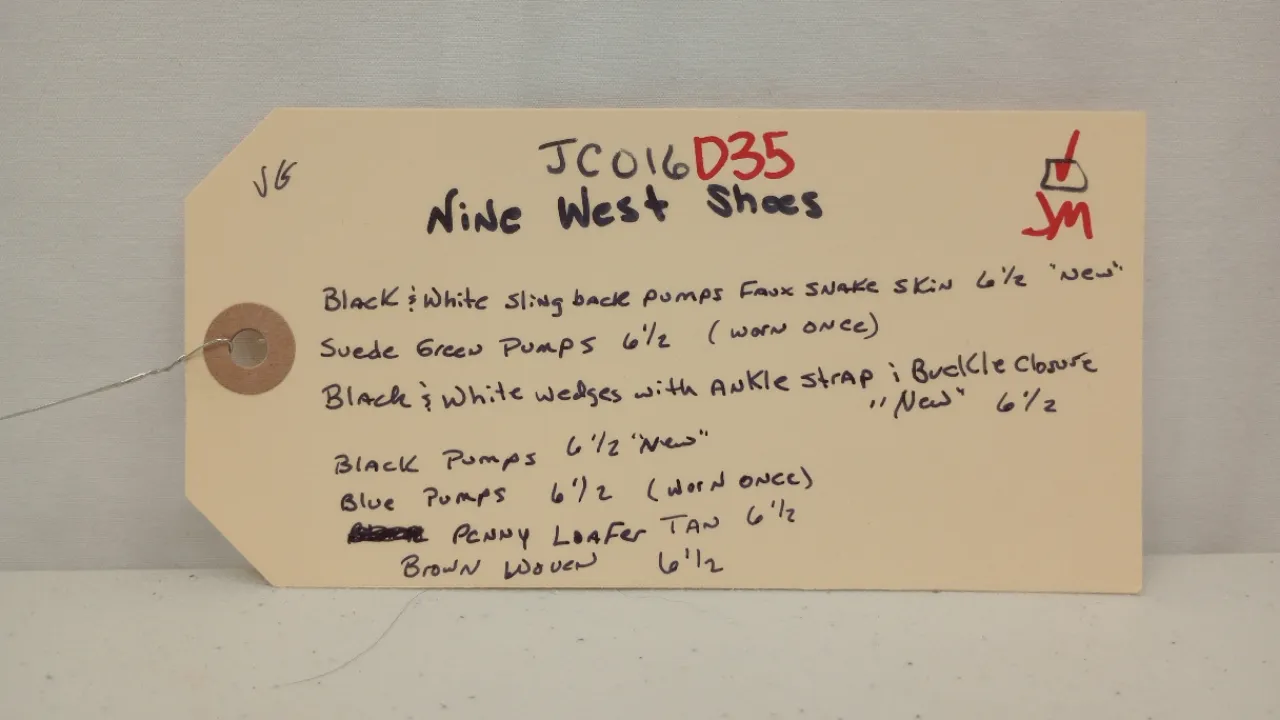 JC016D35
VG
JM
Nine West Shoes
Black & White sling back pumps Faux snake skin 6 1/2 "New"
Suede Green Pumps 6 1/2 (worn once)
Black & White wedges with Ankle strap & Buckle closure
"New" 6 1/2
Black Pumps 6 1/2 "New"
Blue Pumps 6 1/2 (worn once)
Penny Loafer Tan 6 1/2
Brown Woven 6 1/2